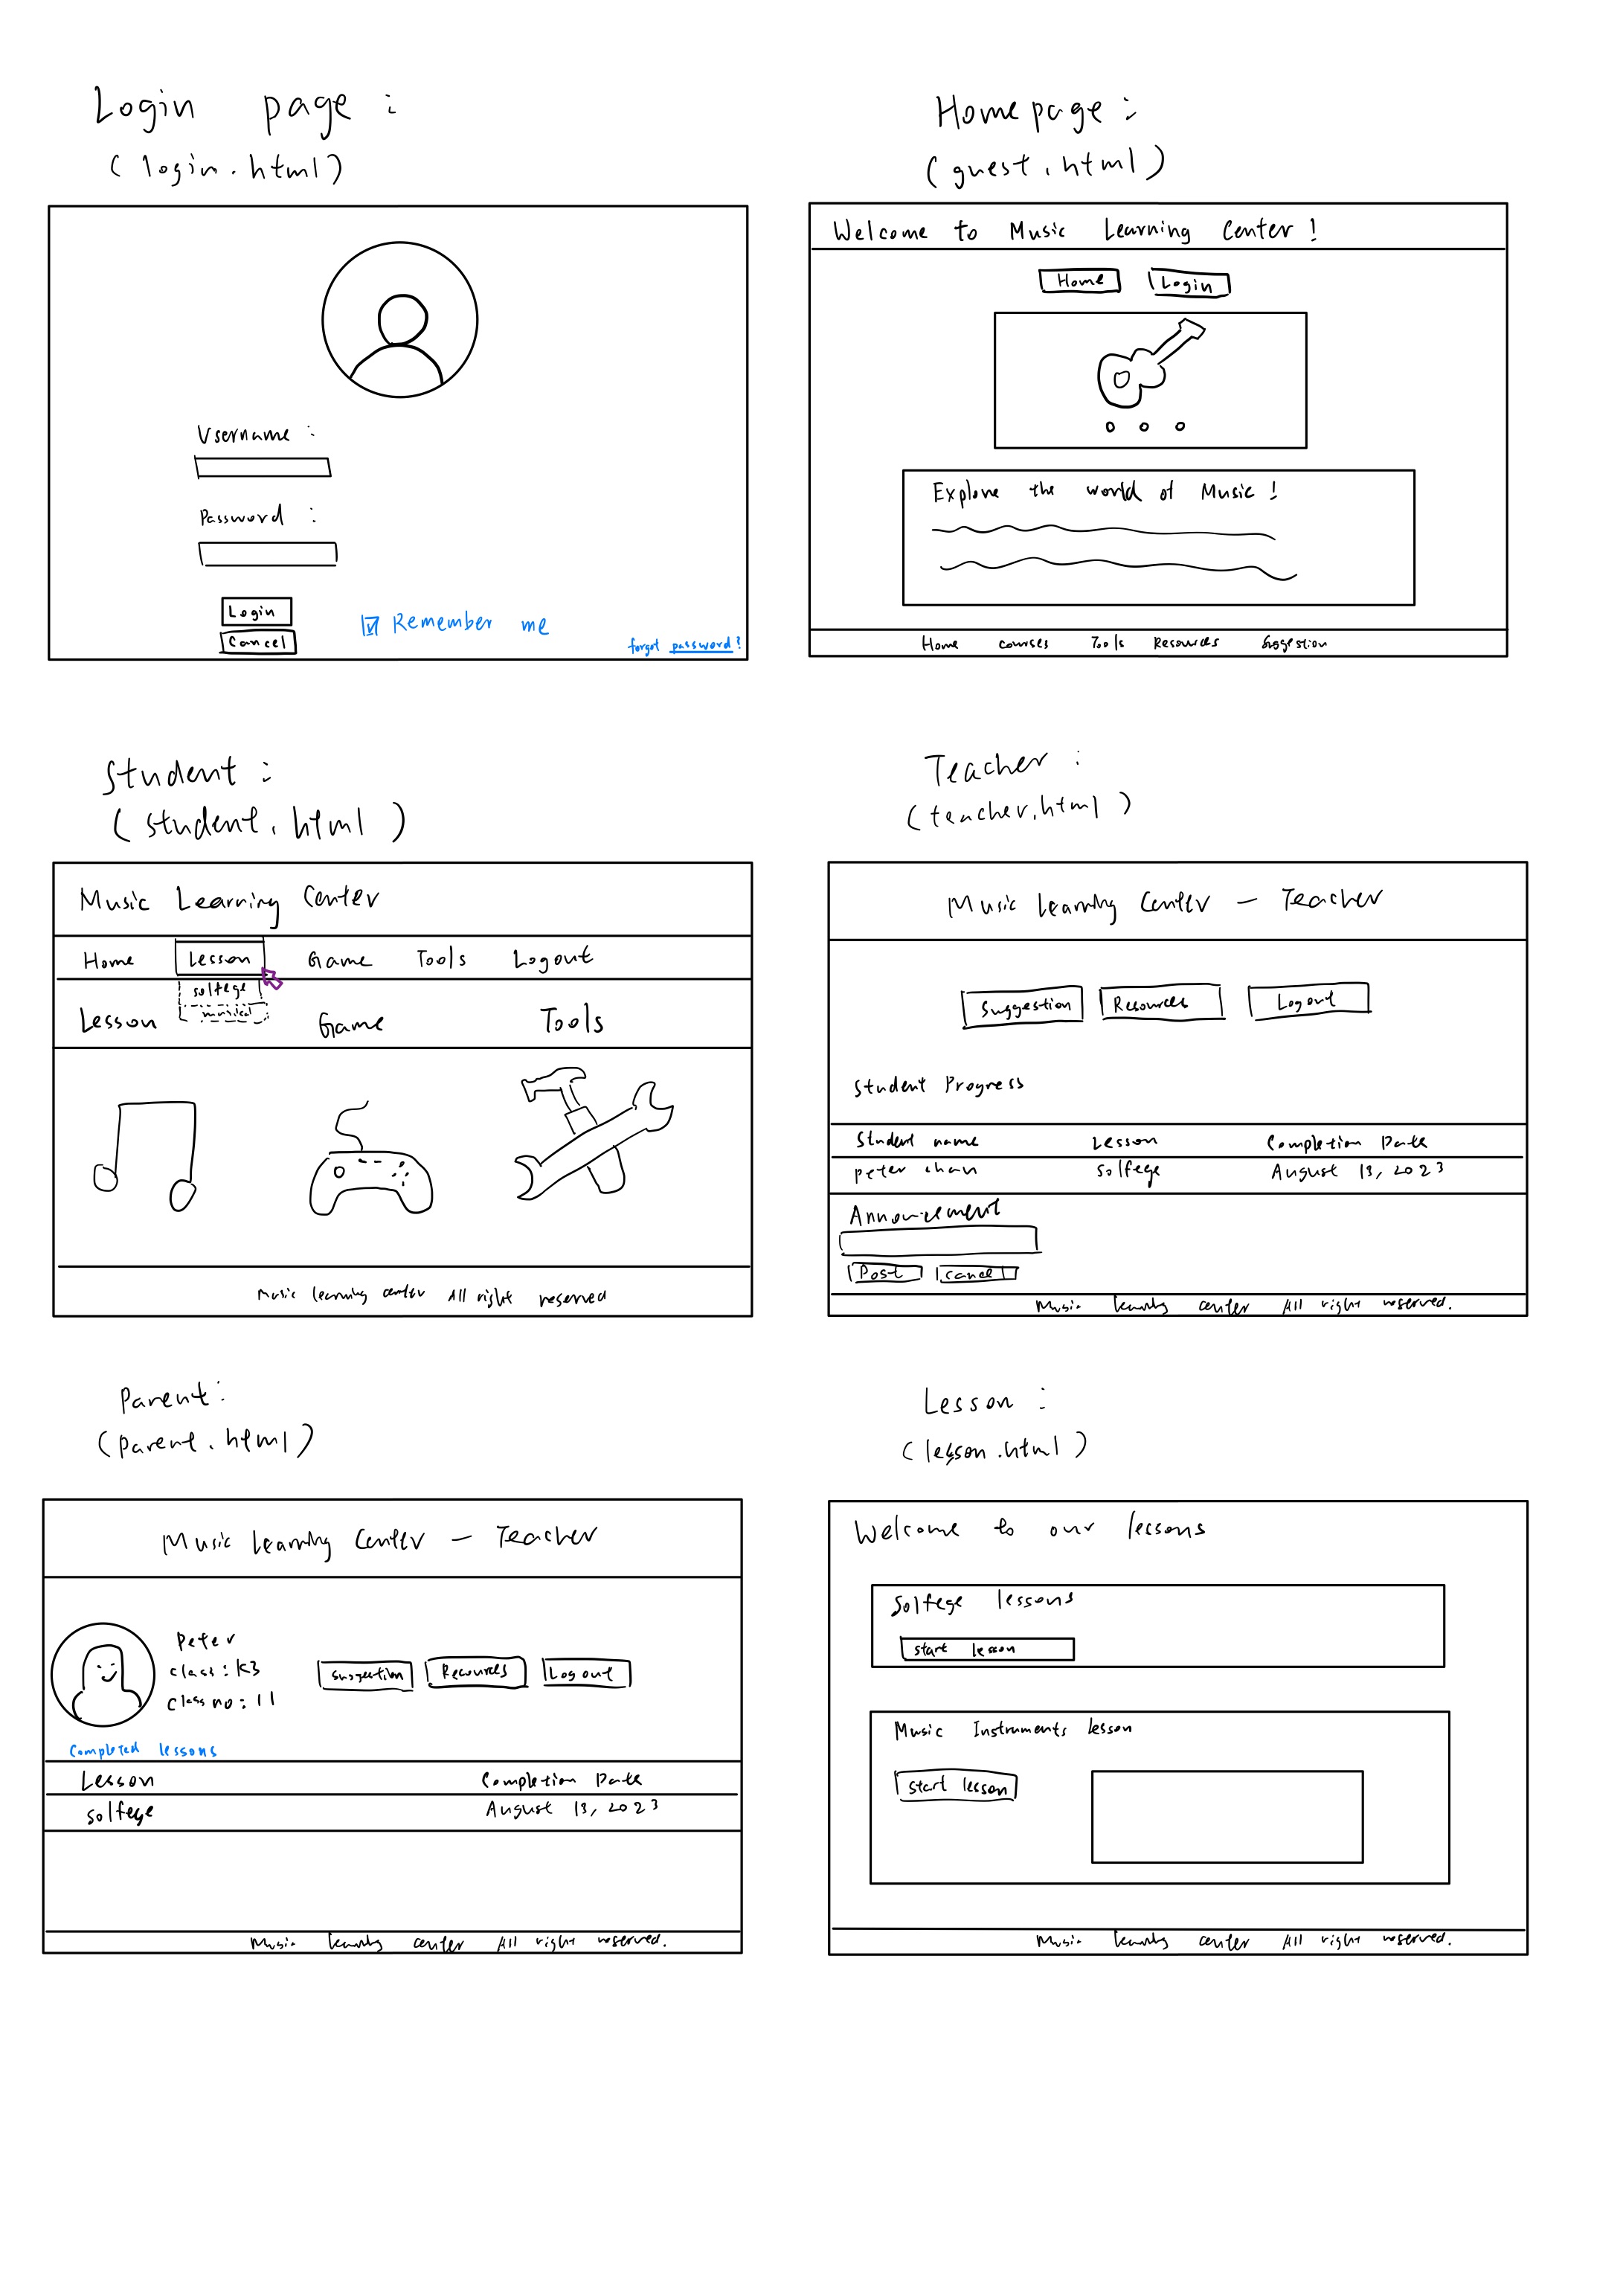 Login page :
( login.html)
Username :
Password :
Login
Cancel
Remember me
forgot password?
Homepage :
( guest.html)
Welcome to Music Learning Center !
Home Login
Explore the world of Music !
Home courses Tools Resources Suggestion
Student :
( student.html )
Music Learning Center
Home Lesson Game Tools Logout
solfege
musical
Lesson Game Tools
Music learning center All right reserved
Teacher :
( teacher.html )
Music Learning Center - Teacher
Suggestion Resources Logout
Student Progress
Student name Lesson Completion Date
peter chan Solfege August 13, 2023
Announcement
Post Cancel
Music learning center All right reserved.
Parent :
(parent.html)
Music Learning Center - Teacher
Peter
class : K3
class no : 11
Suggestion Resources Logout
Completed lessons
Lesson Completion Date
Solfege August 13, 2023
Music learning center All right reserved.
Lesson :
( lesson.html )
Welcome to our lessons
Solfege lessons
start lesson
Music Instruments lesson
start lesson
Music learning center All right reserved.